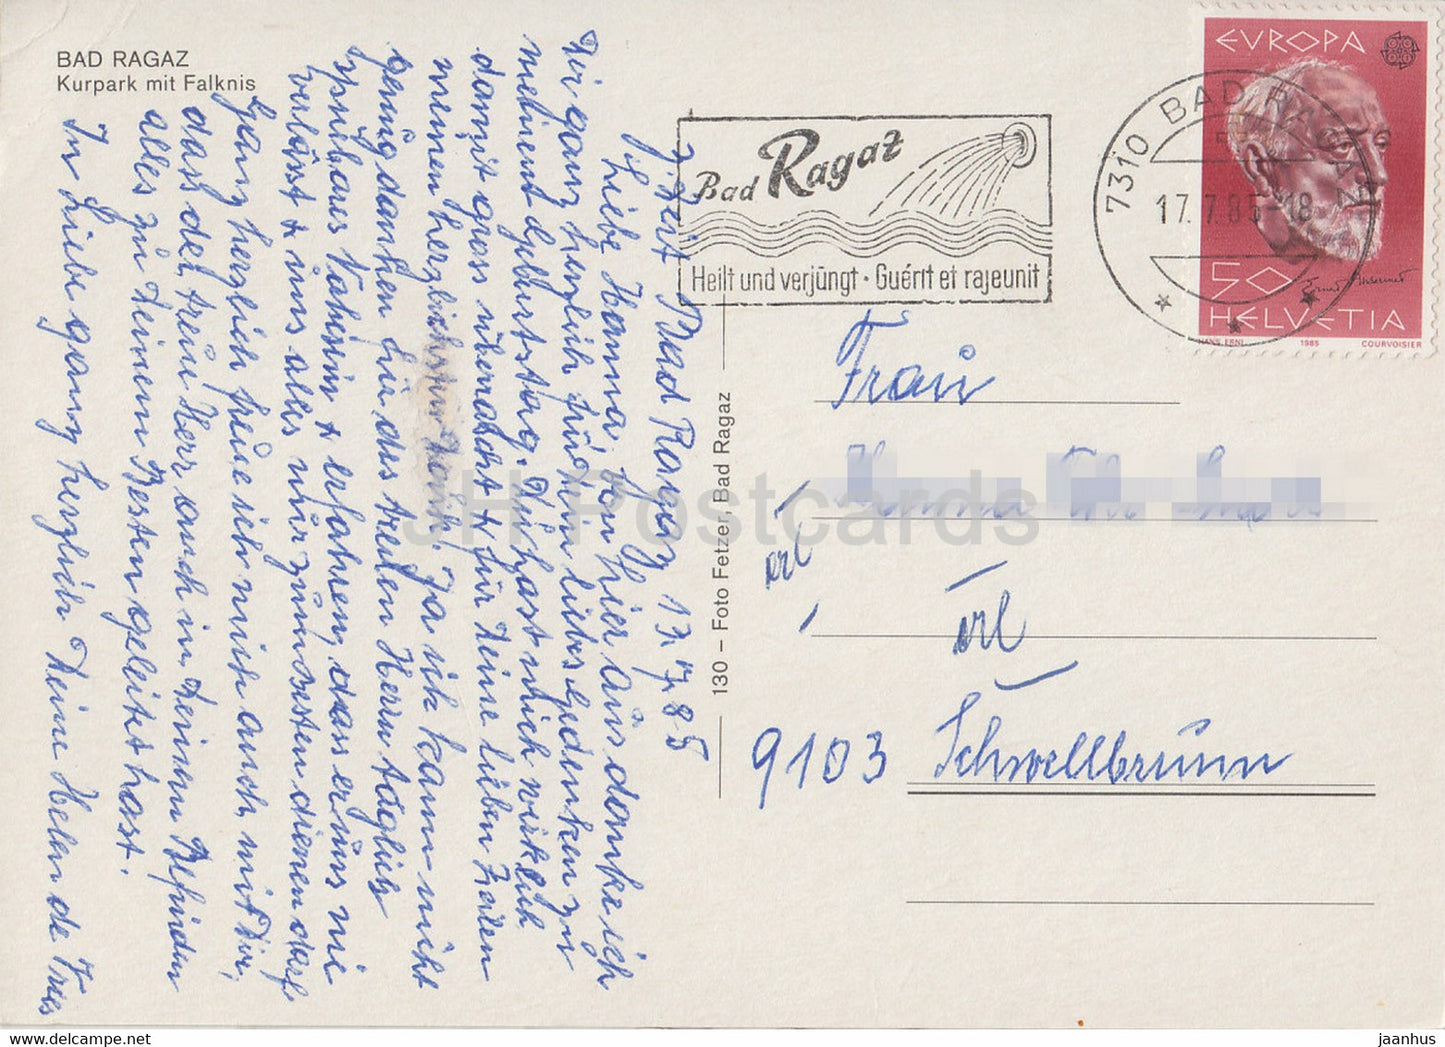 BAD RAGAZ
Kurpark mit Falknis
z. Zeit Bad Ragaz 17.7.85
Liebe Hanna, Von hier aus danke ich
Dir ganz herzlich für Dein liebes Gedenken zu
meinem Geburtstag. Du hast mich wirklich
damit gross überrascht & für Deine lieben Zeilen
meinen herzlichsten Dank. Ja ich kann nicht
genug danken für des treuen Herrn täglich
spürbares Nahesein & erfahren, dass er uns nie
verlässt & uns alles nur zum besten dienen darf.
Ganz herzlich freue ich mich auch mit Dir,
dass der treue Herr auch in Deinem Befinden
alles zu Deinem Besten geleitet hast.
In Liebe ganz herzlich Deine Helen de Vries
130 – Foto Fetzer, Bad Ragaz
Bad Ragaz
Heilt und verjüngt · Guérit et rajeunit
7310 BAD RAGAZ
17.7.85-18
EVROPA
50
HELVETIA
HANS ERNI 1985 COURVOISIER
Frau
9103 Schwellbrunn
JH Postcards
jaanhus